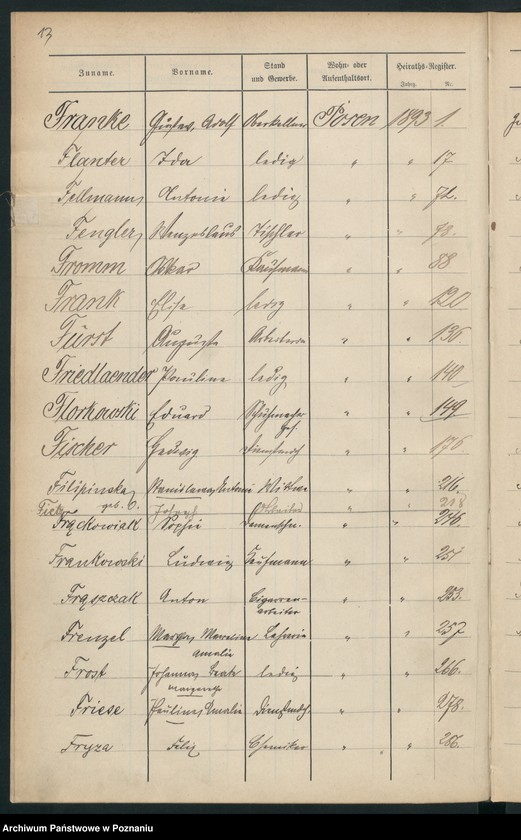 13
Zuname. Vorname. Stand und Gewerbe. Wohn- oder Aufenthaltsort. Heiraths-Register.
Jahrg. Nr.
Franke Gustav Adolf Oberkellner Posen 1893 1.
Flanter Ida ledig " " 17
Fellmann Antonie ledig " "
Fengler Wenzeslaus Tischler " " 78.
Fromm Oskar Kaufmann " " 88
Frank Elise ledig " " 120
Fürst Auguste Arbeiterin " " 136
Friedlaender Pauline ledig " " 140
Florkowski Eduard Schuhmacher " " 149
ges.
Fischer Hedwig " " 176.
Filipinska Stanislawa Antonie Wittwe " " 216.
geb. C. Joseph " " 218
Frąckowiak Sophie " " 246
Frankowski Ludwig Kaufmann " " 251
Frąszczak Anton Cigarren- " " 253.
arbeiter
Frenzel Marceline " " 257
Amalie
Frost Johanna Beate ledig " " 266.
Margarethe
Friese Pauline Amalie Dienstmdch. " " 278.
Fryza Felix Chemiker " " 286.
Archiwum Państwowe w Poznaniu